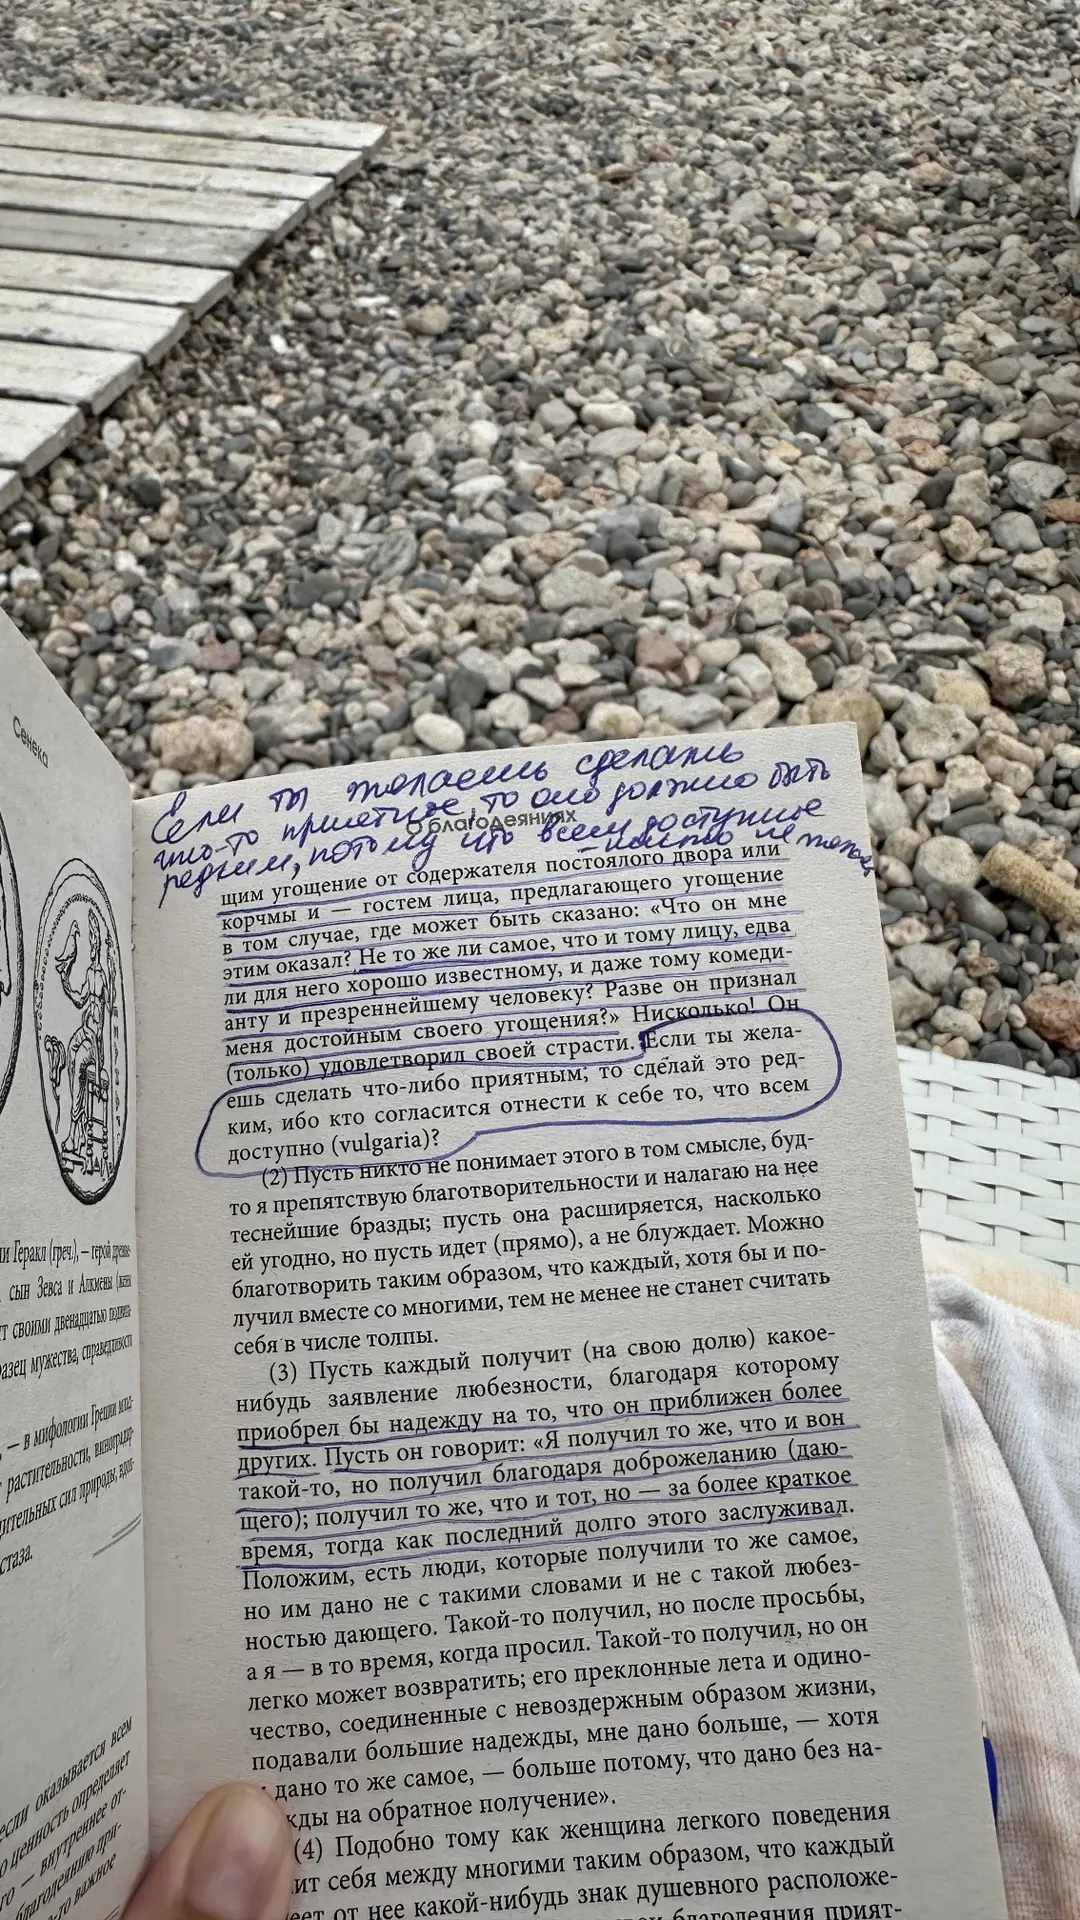 Сенека
ли Геракл (греч.), — герой древне-
сын Зевса и Алкмены (жены
ит своими двенадцатью подвига-
разец мужества, справедливости
— в мифологии Греции млад-
растительности, виноградар-
дительных сил природы, вдох-
стаза.
если оказывается всем
о ценность определяет
го — внутреннее от-
благодеянию при-
то важное
Если ты желаешь сделать
что-то приятное, то оно должно быть
редким, потому что всем доступные
О благодеяниях
щим угощение от содержателя постоялого двора или
корчмы и — гостем лица, предлагающего угощение
в том случае, где может быть сказано: «Что он мне
этим оказал? Не то же ли самое, что и тому лицу, едва
ли для него хорошо известному, и даже тому комеди-
анту и презреннейшему человеку? Разве он признал
меня достойным своего угощения?» Нисколько! Он
(только) удовлетворил своей страсти. Если ты жела-
ешь сделать что-либо приятным, то сделай это ред-
ким, ибо кто согласится отнести к себе то, что всем
доступно (vulgaria)?
(2) Пусть никто не понимает этого в том смысле, буд-
то я препятствую благотворительности и налагаю на нее
теснейшие бразды; пусть она расширяется, насколько
ей угодно, но пусть идет (прямо), а не блуждает. Можно
благотворить таким образом, что каждый, хотя бы и по-
лучил вместе со многими, тем не менее не станет считать
себя в числе толпы.
(3) Пусть каждый получит (на свою долю) какое-
нибудь заявление любезности, благодаря которому
приобрел бы надежду на то, что он приближен более
других. Пусть он говорит: «Я получил то же, что и вон
такой-то, но получил благодаря доброжеланию (даю-
щего); получил то же, что и тот, но — за более краткое
время, тогда как последний долго этого заслуживал.
Положим, есть люди, которые получили то же самое,
но им дано не с такими словами и не с такой любез-
ностью дающего. Такой-то получил, но после просьбы,
а я — в то время, когда просил. Такой-то получил, но он
легко может возвратить; его преклонные лета и одино-
чество, соединенные с невоздержным образом жизни,
подавали большие надежды, мне дано больше, — хотя
дано то же самое, — больше потому, что дано без на-
жды на обратное получение».
(4) Подобно тому как женщина легкого поведения
ит себя между многими таким образом, что каждый
еет от нее какой-нибудь знак душевного расположе-
благодеяния прият-